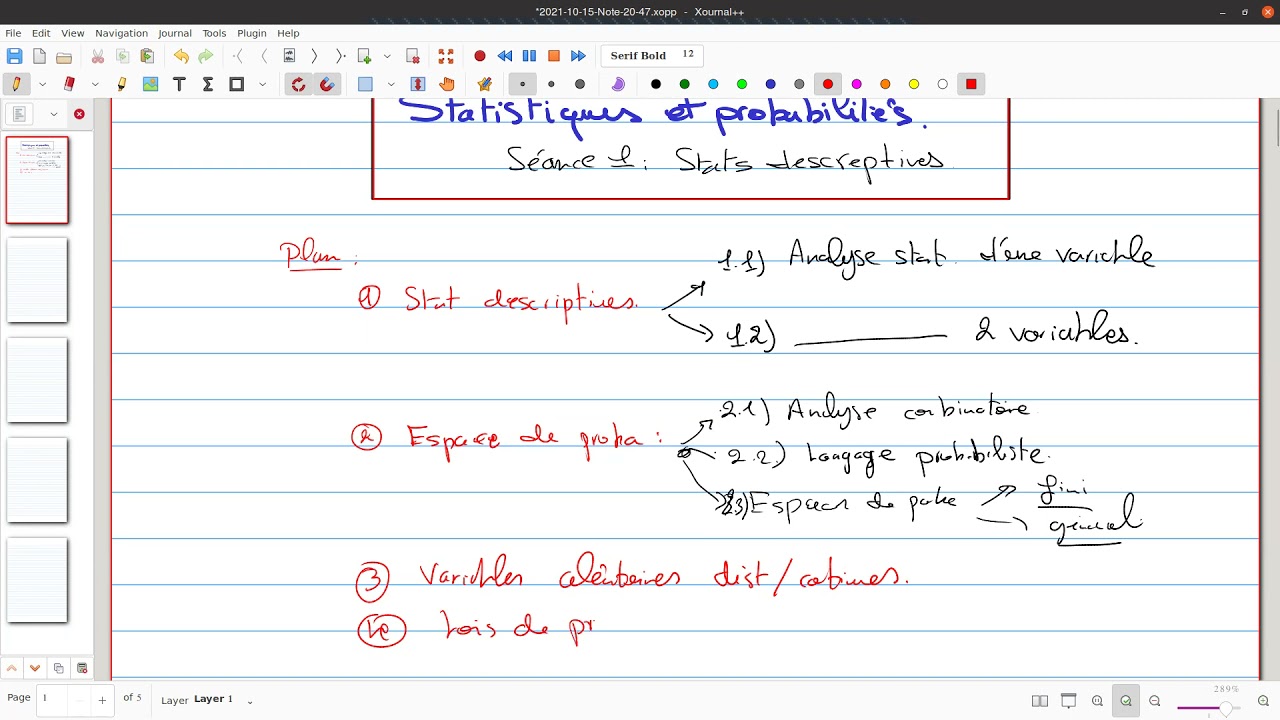 *2021-10-15-Note-20-47.xopp - Xournal++
File Edit View Navigation Journal Tools Plugin Help
Serif Bold 12
Statistiques et probabilités.
Séance 1: Stats descreptives
Plan:
1 Stat descriptives.
1.1) Analyse stat. d'une variable
1.2) 2 variables.
2 Espace de proba:
2.1) Analyse combinatoire
2.2) Langage probabiliste.
2.3) Espaces de proba
fini
général
3 Variables aléatoires dist/continues.
4 Lois de pr
Page 1 of 5 Layer Layer 1
289%